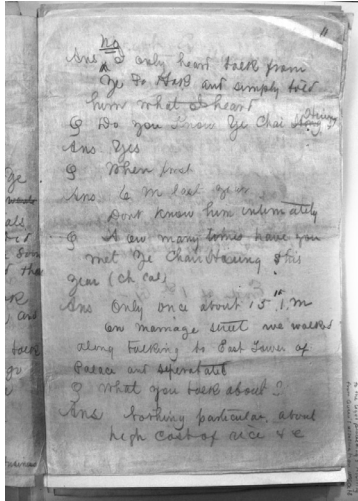 11
No
Ans I only heard talk from
Ye Do Hark and simply told
him what I heard
Q Do you know Ye Chai Haung
Ans Yes
Q When first
Ans. 6 M last year.
Dont know him intimately
Q How many times have you
met Ye Chai Haung this
year (Ch cal)
Ans Only once about 15, 1, M
on Marriage street we walked
along talking to East Tower of
Palace and seperated
Q What you talk about?
Ans Nothing particular, about
high cost of rice & c